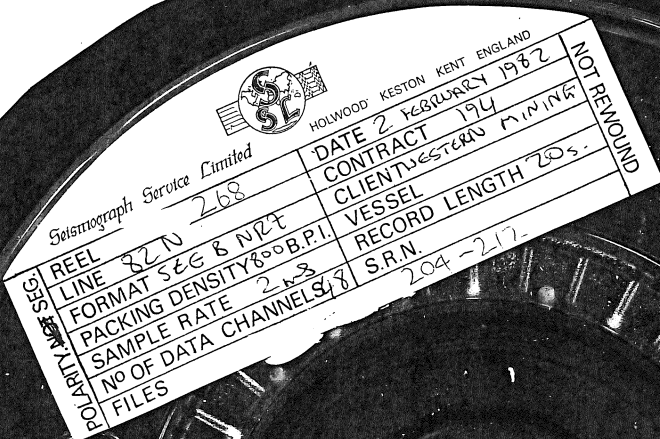 SSL
Seismograph Service Limited
HOLWOOD KESTON KENT ENGLAND
REEL 268
LINE 82N
FORMAT SEG B NRZ
PACKING DENSITY 800 B.P.I.
SAMPLE RATE 2 MS
Nº OF DATA CHANNELS 48
FILES
DATE 2 FEBRUARY 1982
CONTRACT 194
CLIENT WESTERN MINING
VESSEL
RECORD LENGTH 20s.
S.R.N. 204-217
NOT REWOUND
POLARITY SEG.